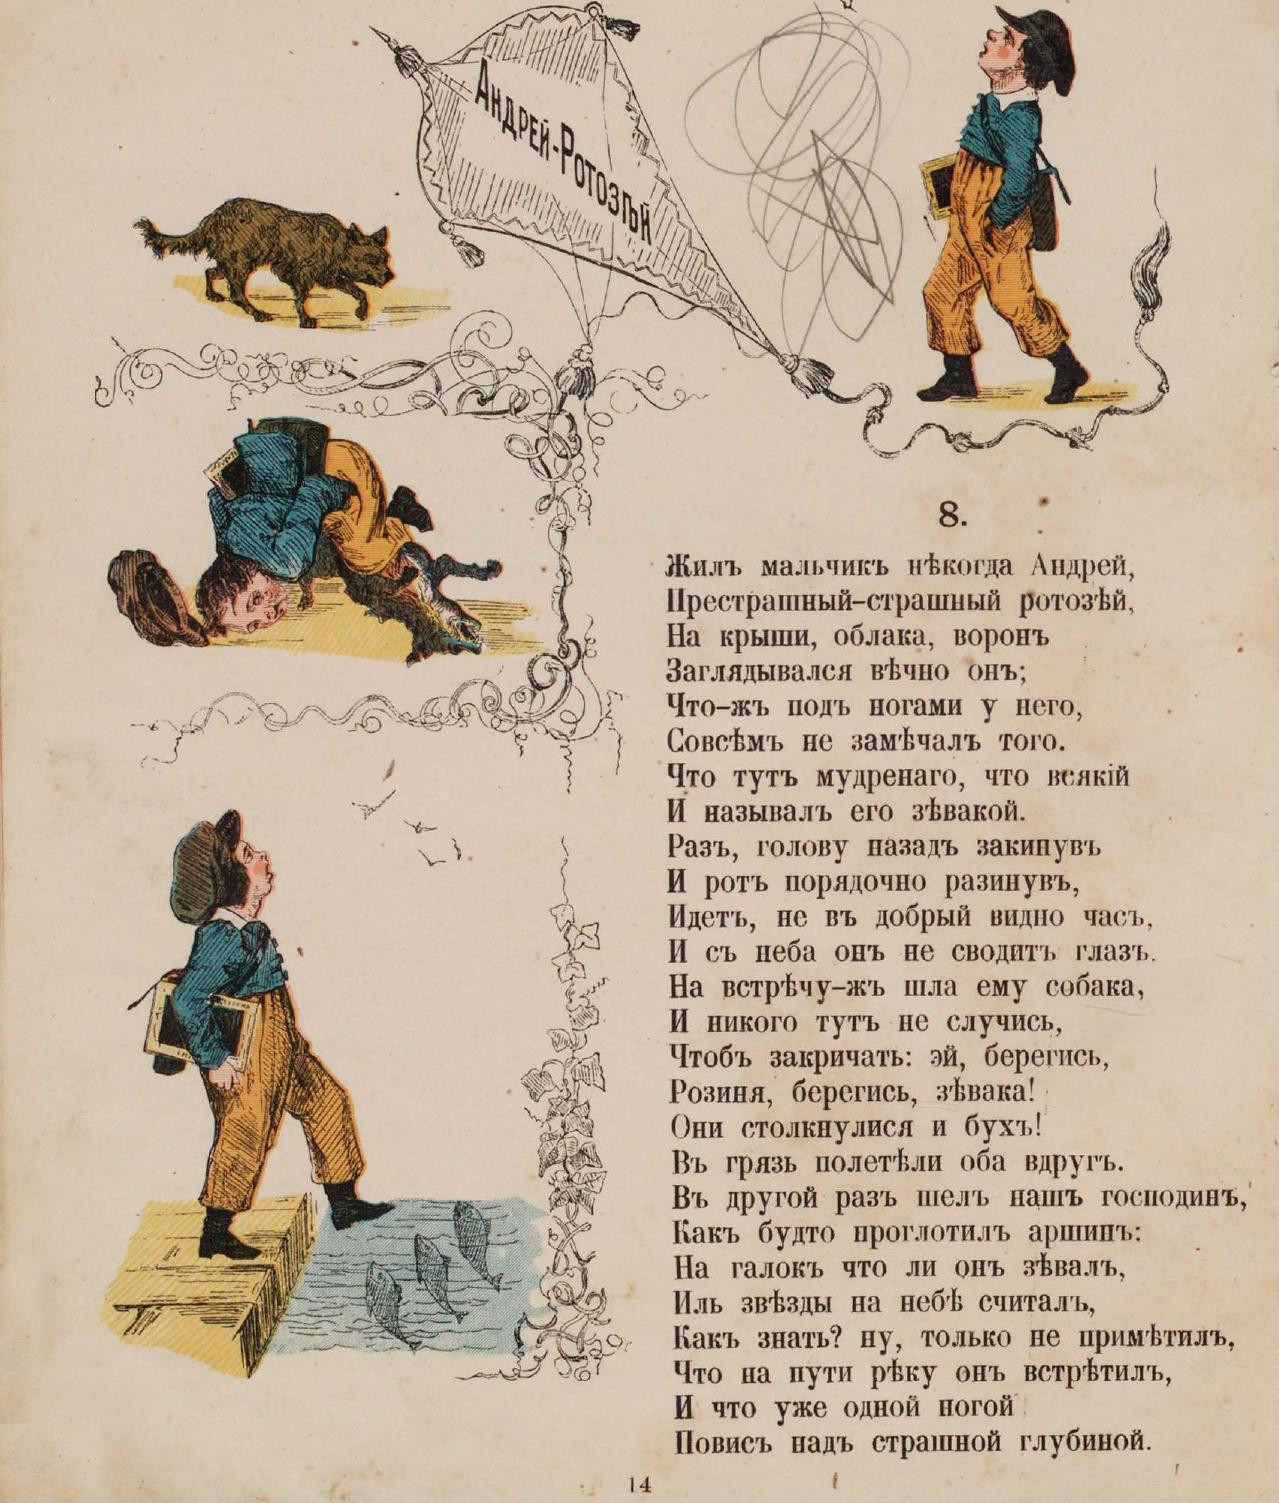 Андрей-Ротозѣй
8.
Жилъ мальчикъ нѣкогда Андрей,
Престрашный-страшный ротозѣй,
На крыши, облака, воронъ
Заглядывался вѣчно онъ;
Что-жъ подъ ногами у него,
Совсѣмъ не замѣчалъ того.
Что тутъ мудренаго, что всякій
И называлъ его зѣвакой.
Разъ, голову назадъ закинувъ
И ротъ порядочно разинувъ,
Идетъ, не въ добрый видно часъ,
И съ неба онъ не сводитъ глазъ.
На встрѣчу-жъ шла ему собака,
И никого тутъ не случись,
Чтобъ закричать: эй, берегись,
Розиня, берегись, зѣвака!
Они столкнулися и бухъ!
Въ грязь полетѣли оба вдругъ.
Въ другой разъ шелъ нашъ господинъ,
Какъ будто проглотилъ аршинъ:
На галокъ что ли онъ зѣвалъ,
Иль звѣзды на небѣ считалъ,
Какъ знать? ну, только не примѣтилъ,
Что на пути рѣку онъ встрѣтилъ,
И что уже одной ногой
Повисъ надъ страшной глубиной.
14